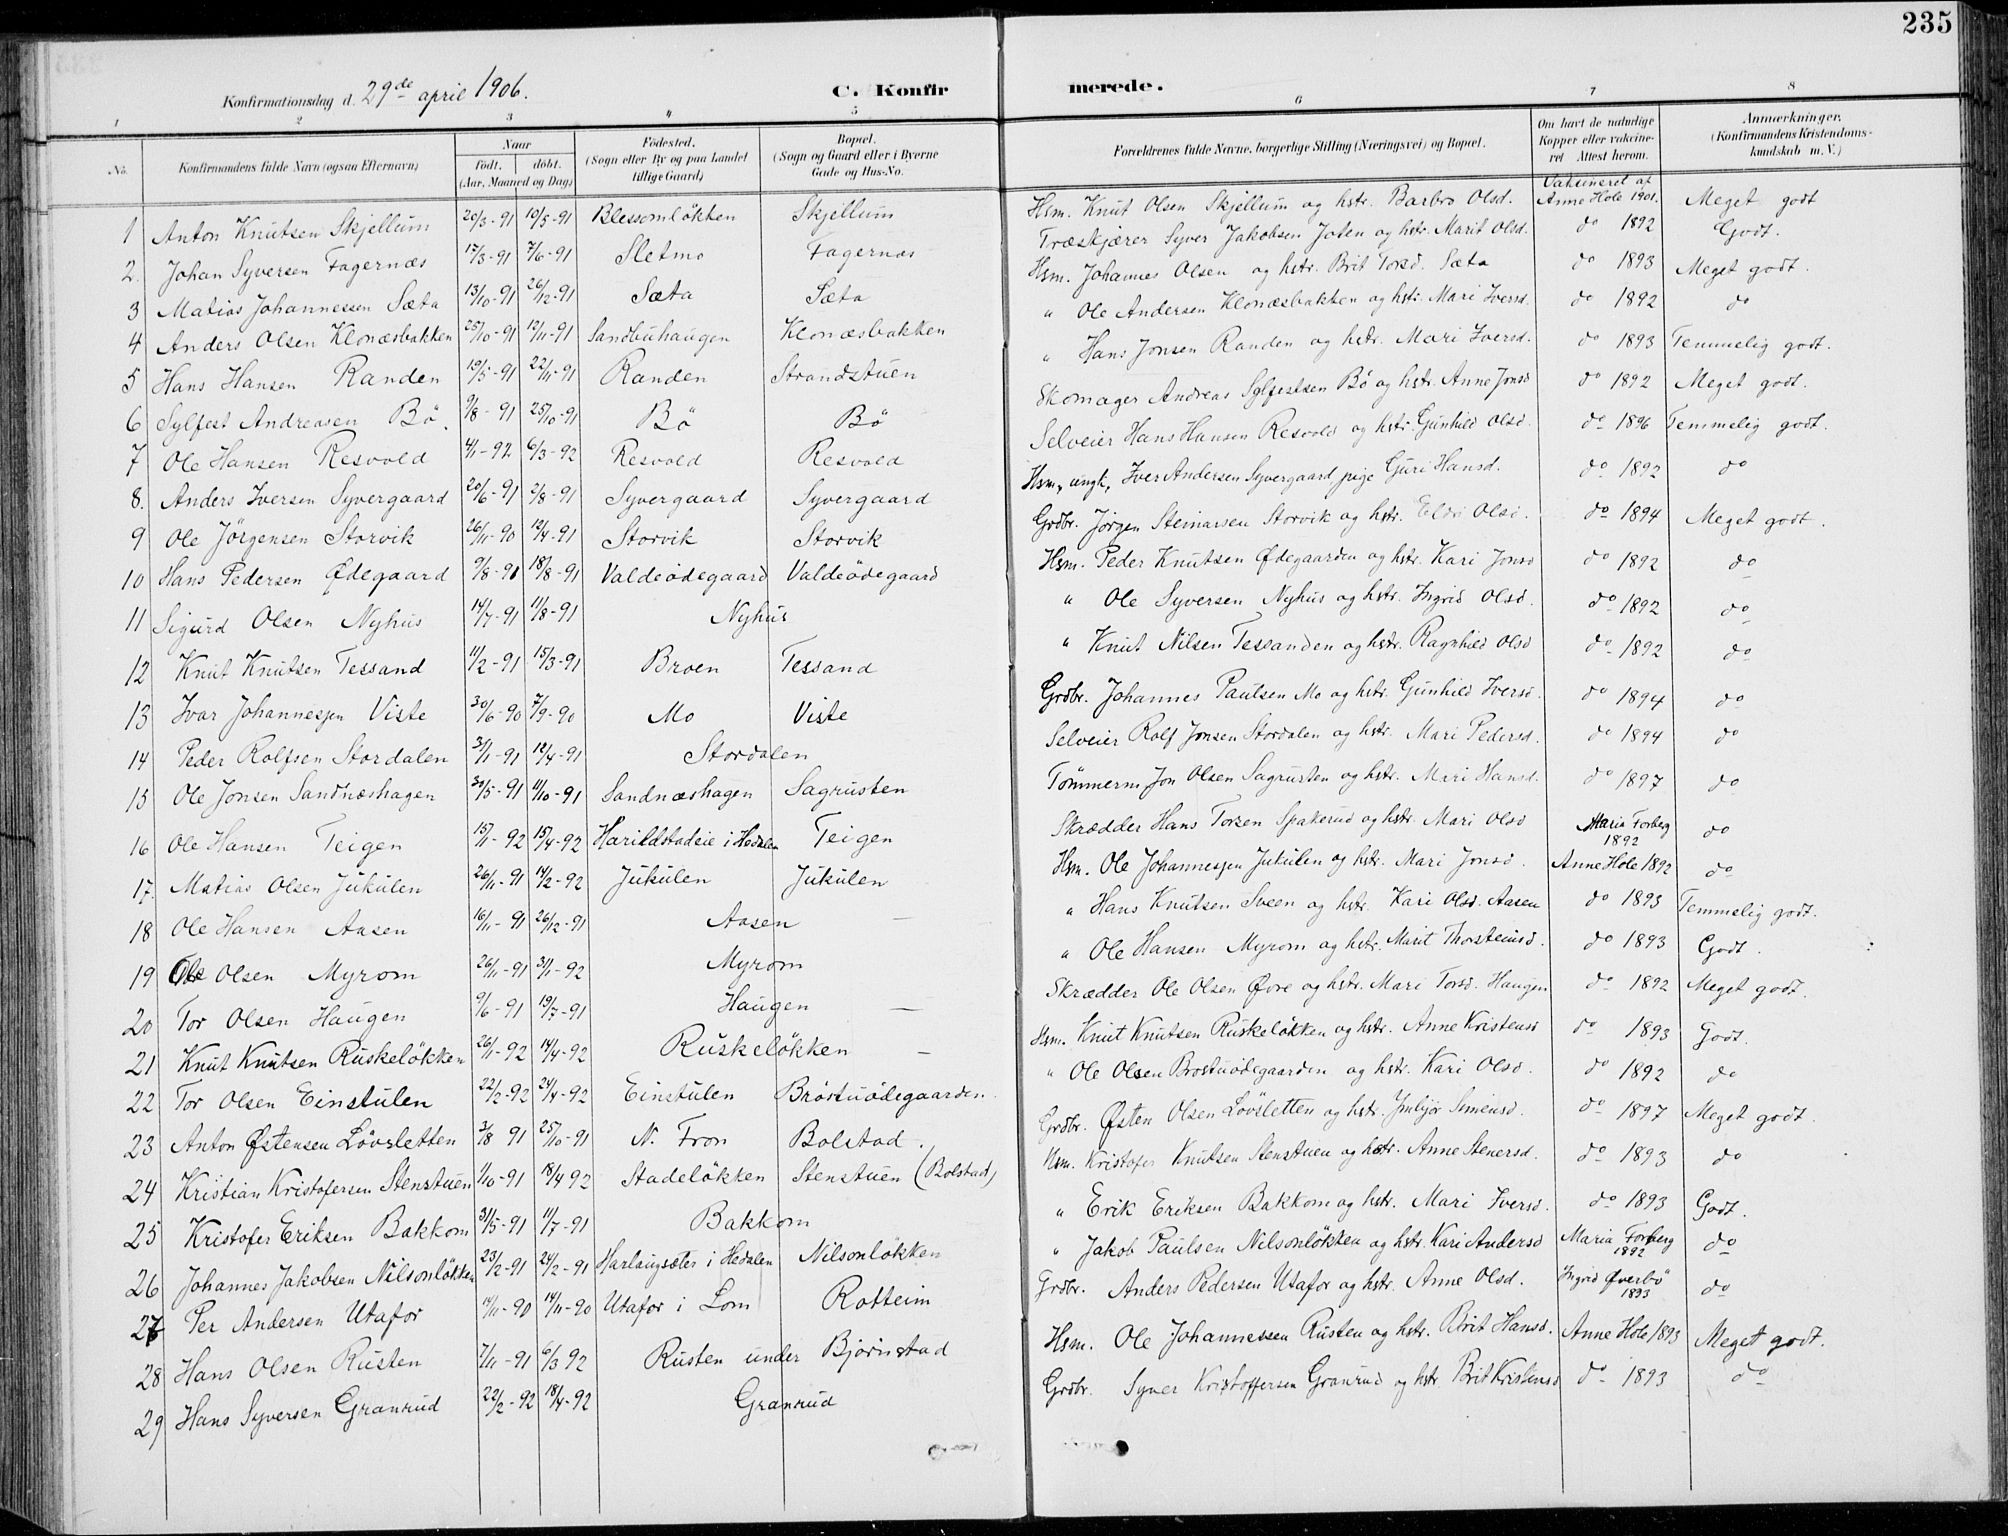 235
Konfirmationsdag d. 29de april 1906. C. Konfirmerede.
1 2 3 4 5 6 7 8
No. Konfirmandens fulde Navn (ogsaa Efternavn) Naar født, døbt. (Aar, Maaned og Dag) Fødested. (Sogn eller By og paa Landet tillige Gaard) Bopæl. (Sogn og Gaard eller i Byerne Gade og Hus-No. Forældrenes fulde Navne, borgerlige Stilling (Næringsvei) og Bopæl. Om havt de naturlige Kopper eller vaccineret Attest herom. Anmærkninger. (Konfirmandens Kristendomskundskab m. V.)
1 Anton Knutsen Skjellum 20/3-91 10/5-91 Blessomløkken Skjellum Hsm. Knut Olsen Skjellum og hstr. Barbro Olsd. Vaksineret af Anne Hole 1901. Meget godt
2. Johan Syversen Fagernæs 17/3-91 7/6-91 Sletmo Fagernæs Træskjærer Syver Jakobsen Joten og hstr. Marit Olsd. do 1892 Godt.
3 Matias Johannessen Sæta 13/10-91 26/12-91 Sæta Sæta Hsm. Johannes Olsen og hstr. Brit Torsd. Sæta do 1893 Meget godt.
4 Anders Olsen Klonæsbakken 25/10-91 12/11-91 Sandbuhaugen Klonæsbakken " Ole Andersen Klonæsbakken og hstr. Mari Iversd. do 1892 do
5 Hans Hansen Randen 19/5-91 22/11-91 Randen Strandstuen " Hans Jonsen Randen og hstr. Mari Iversd. do 1893 Temmelig godt.
6 Sylfest Andreasen Bö. 9/8-91 25/10-91 Bö Bö Skomager Andreas Sylfestsen Bö og hstr. Anne Jonsd do 1892 Meget godt.
7 Ole Hansen Resvold 4/1-92 6/3-92 Resvold Resvold Selveier Hans Hansen Resvold og hstr. Gunhild Olsd. do 1896 Temmelig godt.
8. Anders Iversen Syvergaard 20/6-91 2/8-91 Syvergaard Syvergaard Hsm., ungk, Iver Andersen Syvergaard, pige Guri Hansd. do 1892 do
9 Ole Jörgensen Storvik 26/11-90 12/4-91 Storvik Storvik Grdbr. Jörgen Steinarsen Storvik og hstr. Eldri Olsd. do 1894 Meget godt.
10 Hans Pedersen Ødegaard 9/8-91 18/8-91 Valdeödegaard Valdeödegaard Hsm. Peder Knutsen Ødegaarden og hstr. Kari Jonsd do 1892 do
11 Sigurd Olsen Nyhus 14/7-91 11/8-91 Nyhus " Ole Syversen Nyhus og hstr. Ingrid Olsd. do 1892 do
12 Knut Knutsen Tessand 11/2-91 15/3-91 Broen Tessand " Knut Nilsen Tessanden og hstr. Ragnhild Olsd do 1892 do
13 Ivar Johannesjen Viste 30/6-90 7/9-90 Mo Viste Grdbr. Johannes Paulsen Mo og hstr. Gunhild Iversd. do 1894 do
14 Peder Rolfsen Stordalen 3/1-91 12/4-91 Stordalen Selveier Rolf Jonsen Stordalen og hstr. Mari Pedersd. do 1894 do
15 Ole Jonsen Sandnæshagen 30/5-91 11/10-91 Sandnæshagen Sagrusten Tömmerm Jon Olsen Sagrusten og hstr. Mari Hansd. do 1897 do
16 Ole Hansen Teigen 15/1-92 15/4-92 Harildstadeie i Hedalen Teigen Skrædder Hans Torsen Spakerud og hstr. Mari Olsd Maria Forberg 1892 do
17. Matias Olsen Jukulen 26/11-91 14/2-92 Jukulen Jukulen Hsm. Ole Johannesjen Jukulen og hstr. Mari Jonsd. Anne Hole 1892 do
18 Ole Hansen Aasen 16/11-91 26/12-91 Aasen — " Hans Knutsen Sveen og hstr. Kari Olsd. Aasen do 1893 Temmelig godt.
19 Ole Olsen Myrom 26/11-91 31/1-92 Myrom " Ole Hansen Myrom og hstr. Marit Thorsteinsd. do 1893 Godt.
20 Tor Olsen Haugen 9/6-91 19/7-91 Haugen — Skrædder Ole Olsen Øvre og hstr. Mari Torsd. Haugen do 1892 Meget godt.
21 Knut Knutsen Ruskelökken 26/1-92 14/4-92 Ruskelökken — Hsm. Knut Knutsen Ruskelökken og hstr. Anne Kristensd do 1893 Godt.
22 Tor Olsen Einstulen 22/2-92 24/4-92 Einstulen Bröstuödegaarden. " Ole Olsen Brostuödegaarden og hstr. Kari Olsd. do 1892 do
23 Anton Østensen Lövsletten 3/8 91 25/10-91 N. Fron Bolstad. Grdbr. Østen Olsen Lövsletten og hstr. Imbjör Simensd. do 1897 Meget godt.
24 Kristian Kristofersen Stenstuen 1/10-91 18/4 92 Stadelökken Stenstuen (Bolstad) Hsm. Kristofer Knutsen Stenstuen og hstr. Anne Stenersd. do 1893 do
25 Kristofer Eriksen Bakkom 31/5-91 11/7-91 Bakkom " Erik Eriksen Bakkom og hstr. Mari Iversd. do 1893 Godt.
26 Johannes Jakobsen Nilsonlökken 23/2-91 24/2-91 Harlaugsæter i Hedalen Nilsonlökken " Jakob Paulsen Nilsonlökken og hstr. Kari Andersd Maria Forberg 1892 do
27 Per Andersen Utafor 14/11-90 14/11-90 Utafor i Lom Rotteim Grdbr. Anders Pedersen Utafor og hstr. Anne Olsd. Ingrid Øverbö 1893 do
28 Hans Olsen Rusten 7/11-91 6/3 92 Rusten under Bjørnstad Hsm. Ole Johannessen Rusten og hstr. Brit Hansd. Anne Hole 1893 Meget godt.
29 Hans Syversen Granrud 22/2-92 18/4-92 Granrud Grdbr. Syver Kristoffersen Granrud og hstr Brit Kristensd do 1893 do